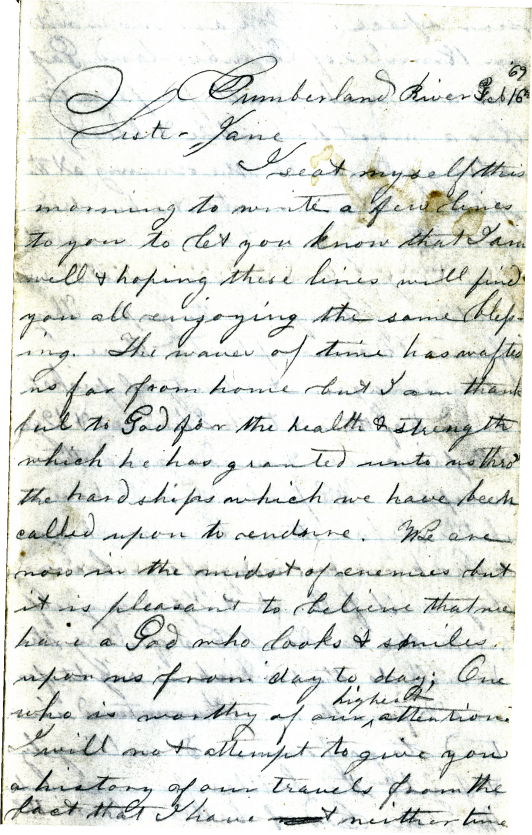 Cumberland River Feb 16th
Sister Jane
I seat myself this
morning to write a few lines
to you to let you know that I am
well & hoping these lines will find
you all enjoying the same bless-
ing. The waves of time has wafted
us far from home but I am thank
ful to God for the health & strength
which he has granted unto us thro'
the hardships which we have been
called upon to endure. We are
now in the midst of enemies but
it is pleasant to believe that we
have a God who looks & smiles
upon us from day to day; One
who is worthy of our highest attention.
I will not attempt to give you
a history of our travels from the
fact that I have neither time